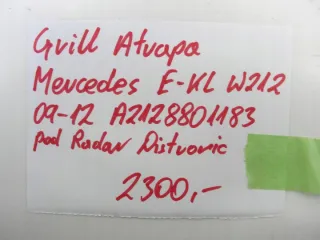 Grill Atrapa
Mercedes E-KL W212
09-12 A2128801183
pod Radar Distronic
2300,-